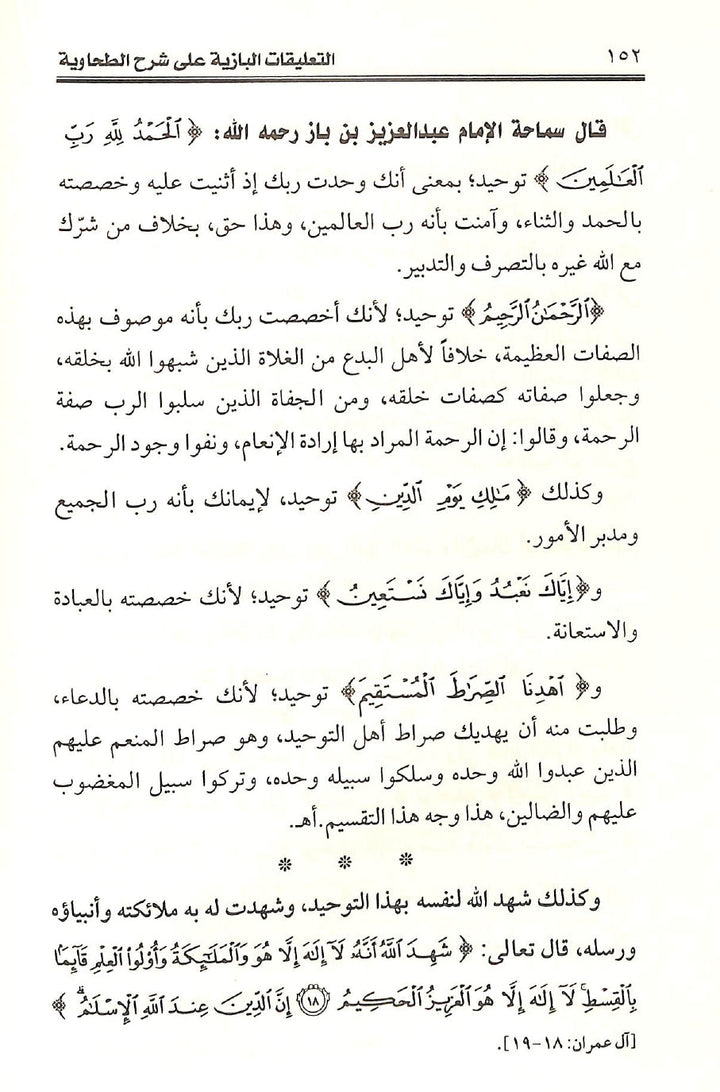 ١٥٢ التعليقات البازية على شرح الطحاوية
قال سماحة الإمام عبدالعزيز بن باز رحمه الله: ﴿ ٱلْحَمْدُ لِلَّهِ رَبِّ
ٱلْعَٰلَمِينَ ﴾ توحيد؛ بمعنى أنك وحدت ربك إذ أثنيت عليه وخصصته
بالحمد والثناء، وآمنت بأنه رب العالمين، وهذا حق، بخلاف من شرّك
مع الله غيره بالتصرف والتدبير.
﴿ٱلرَّحْمَٰنُ ٱلرَّحِيمُ﴾ توحيد؛ لأنك أخصصت ربك بأنه موصوف بهذه
الصفات العظيمة، خلافاً لأهل البدع من الغلاة الذين شبهوا الله بخلقه،
وجعلوا صفاته كصفات خلقه، ومن الجفاة الذين سلبوا الرب صفة
الرحمة، وقالوا: إن الرحمة المراد بها إرادة الإنعام، ونفوا وجود الرحمة.
وكذلك ﴿ مَٰلِكِ يَوْمِ ٱلدِّينِ﴾ توحيد، لإيمانك بأنه رب الجميع
ومدبر الأمور.
و﴿إِيَّاكَ نَعْبُدُ وَإِيَّاكَ نَسْتَعِينُ ﴾ توحيد؛ لأنك خصصته بالعبادة
والاستعانة.
و﴿ ٱهْدِنَا ٱلصِّرَٰطَ ٱلْمُسْتَقِيمَ﴾ توحيد؛ لأنك خصصته بالدعاء،
وطلبت منه أن يهديك صراط أهل التوحيد، وهو صراط المنعم عليهم
الذين عبدوا الله وحده وسلكوا سبيله وحده، وتركوا سبيل المغضوب
عليهم والضالين، هذا وجه هذا التقسيم.أهـ.
* * *
وكذلك شهد الله لنفسه بهذا التوحيد، وشهدت له به ملائكته وأنبياؤه
ورسله، قال تعالى: ﴿ شَهِدَ ٱللَّهُ أَنَّهُۥ لَآ إِلَٰهَ إِلَّا هُوَ وَٱلْمَلَٰٓئِكَةُ وَأُو۟لُوا۟ ٱلْعِلْمِ قَآئِمًۢا
بِٱلْقِسْطِ ۚ لَآ إِلَٰهَ إِلَّا هُوَ ٱلْعَزِيزُ ٱلْحَكِيمُ ١٨ إِنَّ ٱلدِّينَ عِندَ ٱللَّهِ ٱلْإِسْلَٰمُ ۗ ﴾
[آل عمران: ١٨-١٩].